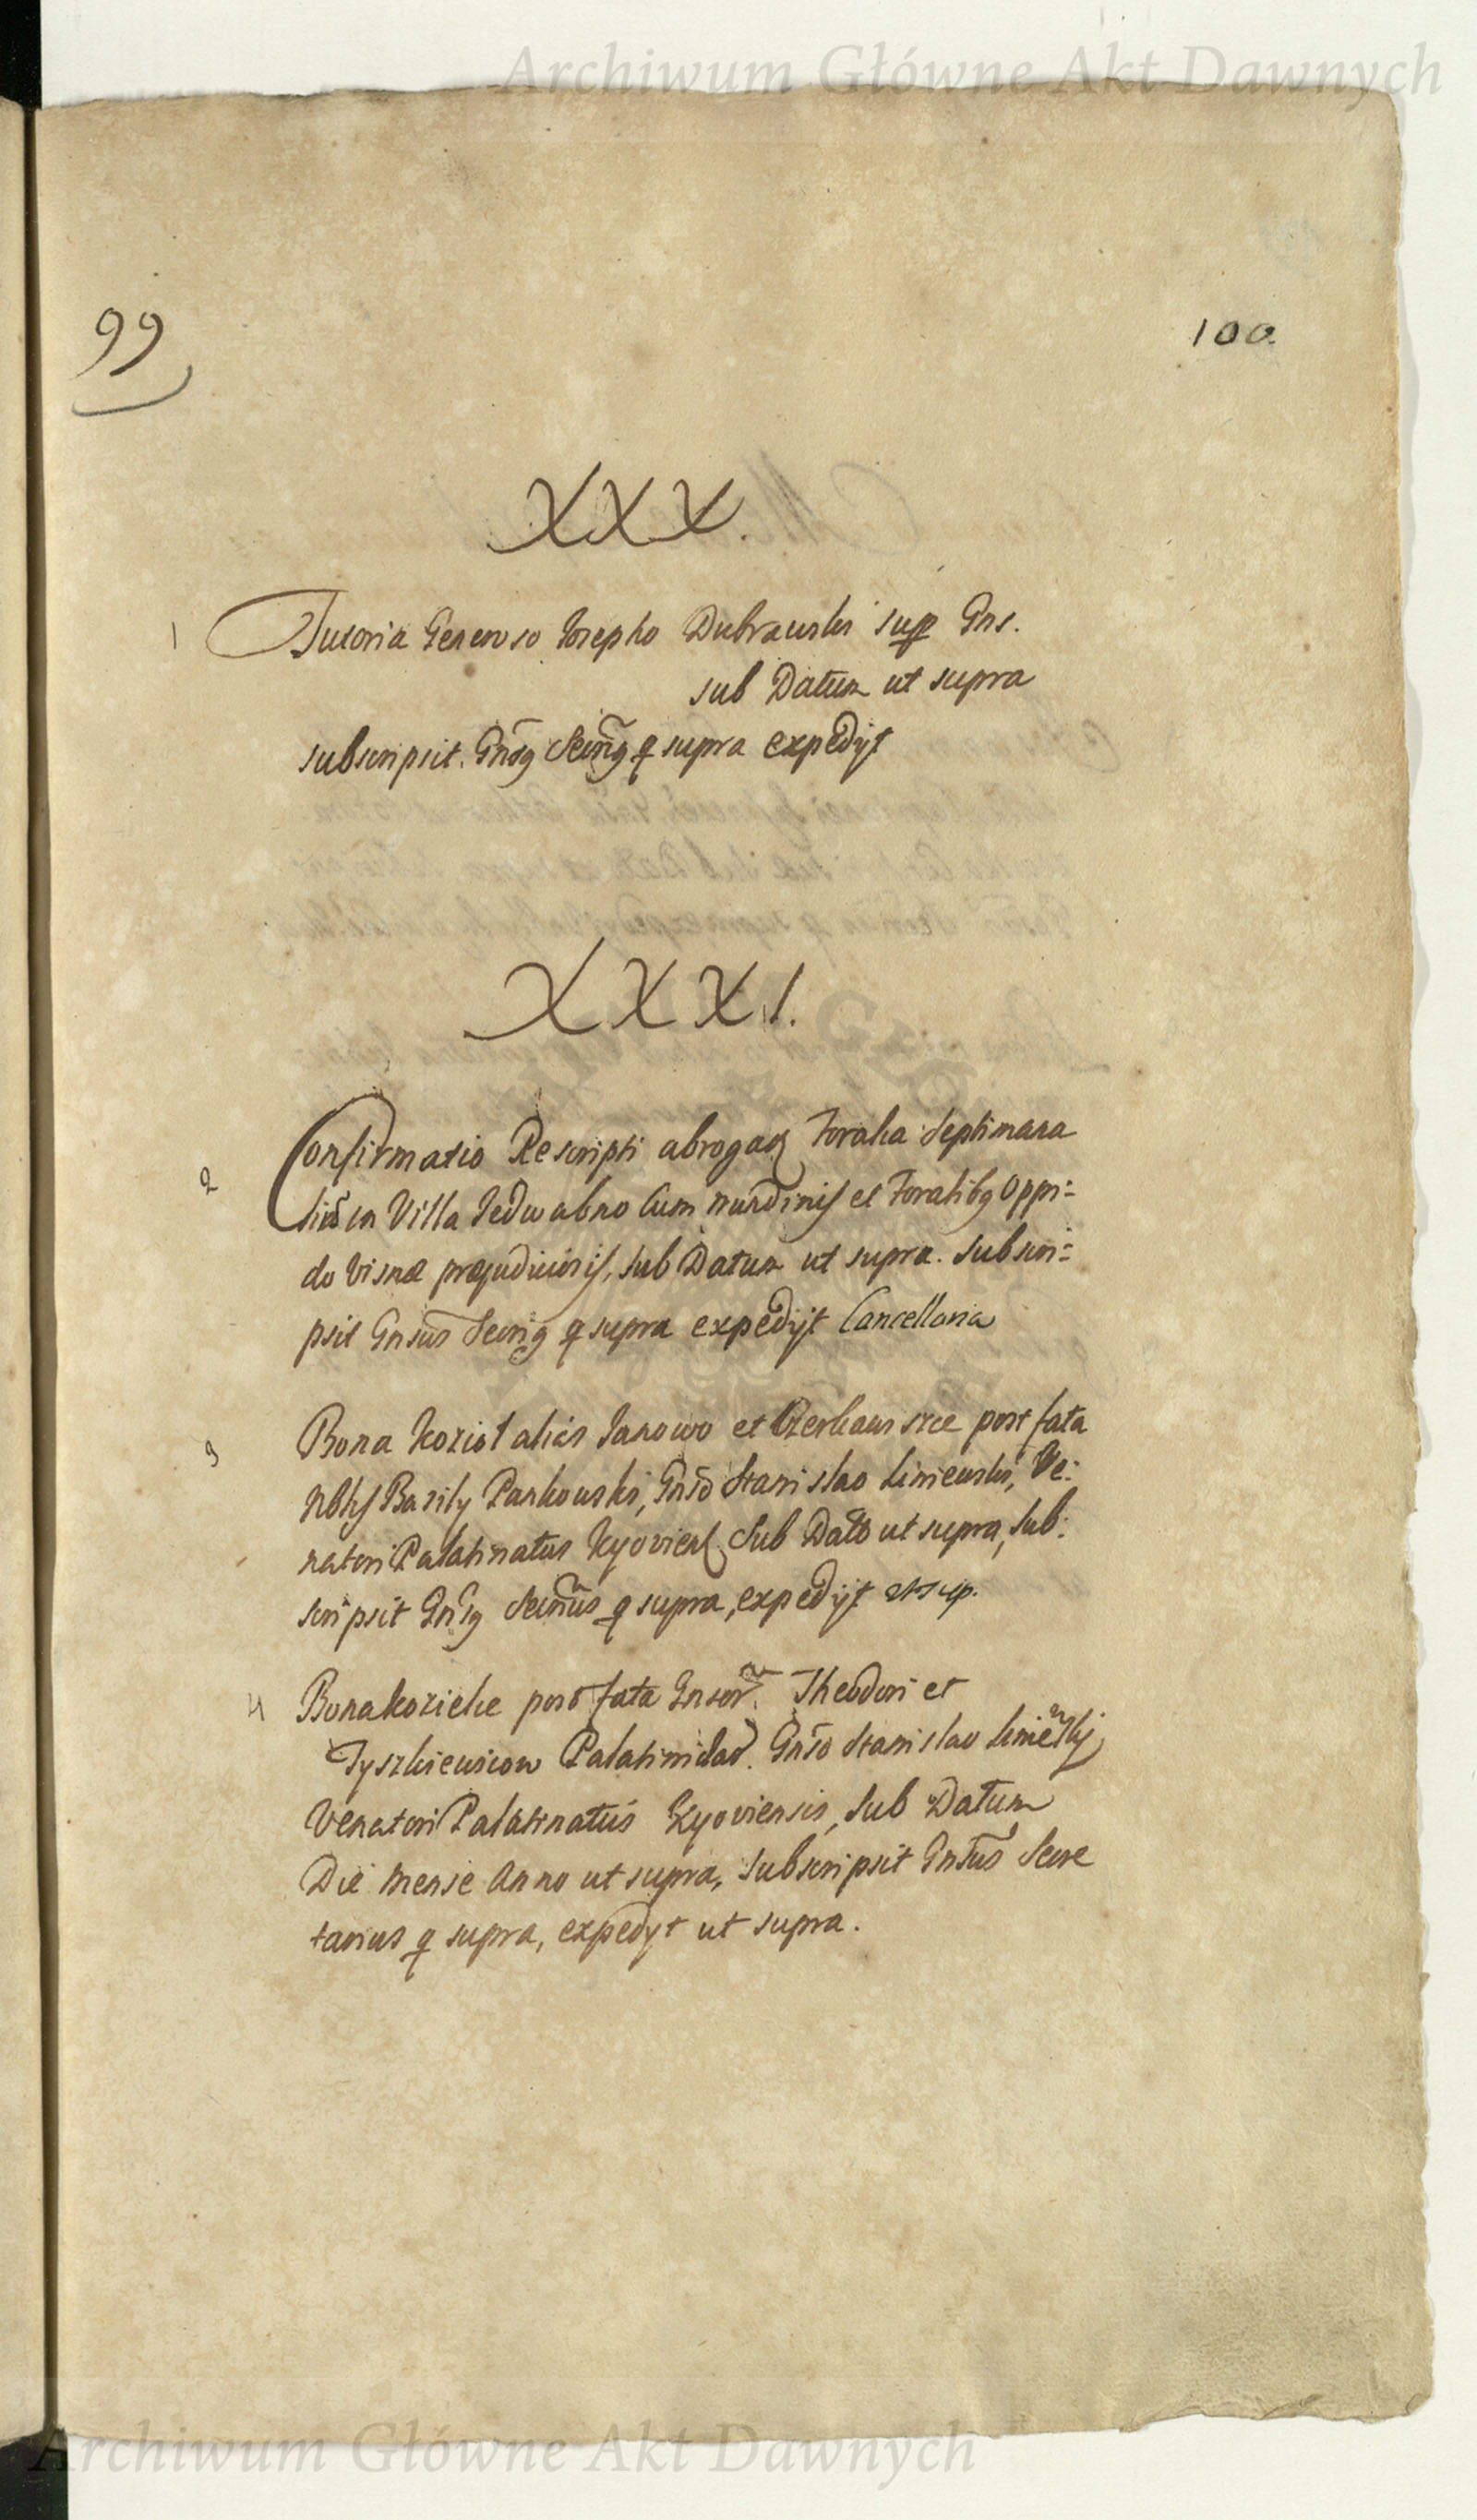 Archiwum Główne Akt Dawnych
99
100.
XXX.
1 Tutoria Generoso Josepho Dubrawski supp Gns.
sub Datum ut supra
subscripsit. Gnsq Secrīq q supra expedijt
XXXI.
2 Confirmatio Rescripti abrogan Foralia Septimana
liū in Villa Jedwabno cum nundinis et Foralibq Oppi=
do Visnæ præjudiciosis, sub Datum ut supra. Subscri=
psit Gnsus Secriq q supra expedijt Cancellaria
3 Bona Koziol alias Janowo et post fata
Nblis Basily Pankowski, Gnso Stanislao Liniewski, Ve:
natori Palatinatus Kyovien. Sub Datto ut supra, Sub:
scripsit Gnsq Secrius q supra, expedijt ut sup.
4 Bona Kozichi post fata Gnsor. Theodori et
Tyszkiewiczow Palatinidar. Gnso Stanislao Liniewski,
Venatori Palatinatus Kyoviensis, Sub Datum
Die mense Anno ut supra, Subscripsit Gnsus Secre
tarius q supra, expedyt ut supra.
Archiwum Główne Akt Dawnych